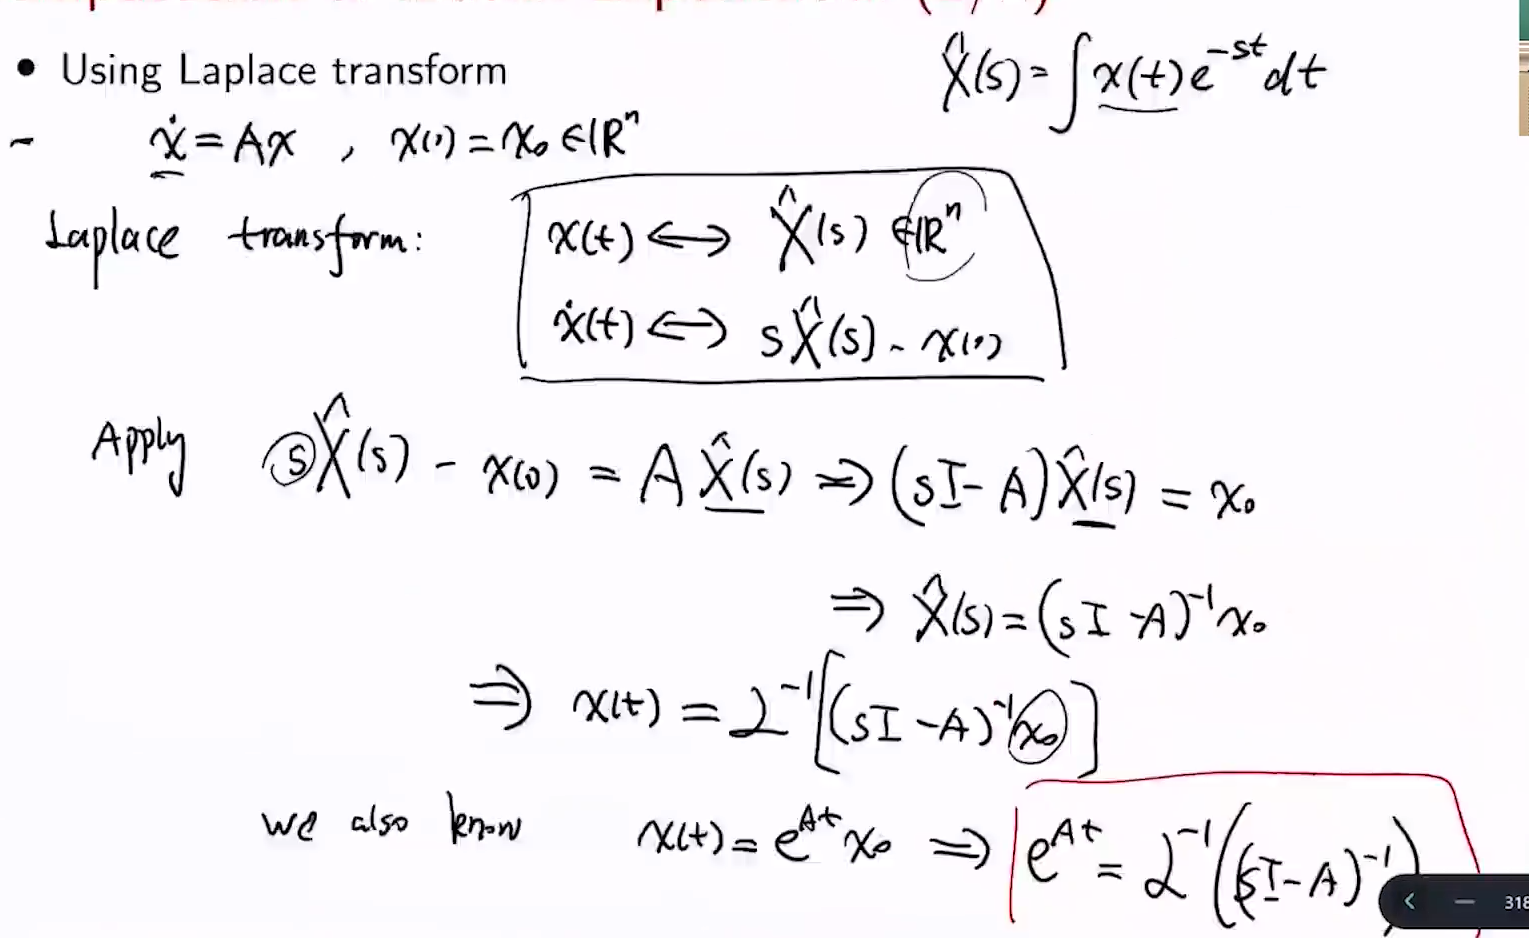 • Using Laplace transform
X̂(s) = ∫ x(t) e^{-st} dt
- ẋ = Ax , x(0) = x₀ ∈ ℝⁿ
Laplace transform: x(t) ⟺ X̂(s) ∈ ℝⁿ
ẋ(t) ⟺ sX̂(s) - x(0)
Apply sX̂(s) - x(0) = A X̂(s) ⇒ (sI - A) X̂(s) = x₀
⇒ X̂(s) = (sI - A)⁻¹ x₀
⇒ x(t) = ℒ⁻¹[(sI - A)⁻¹ x₀]
we also know x(t) = e^{At} x₀ ⇒ e^{At} = ℒ⁻¹((sI - A)⁻¹)
318